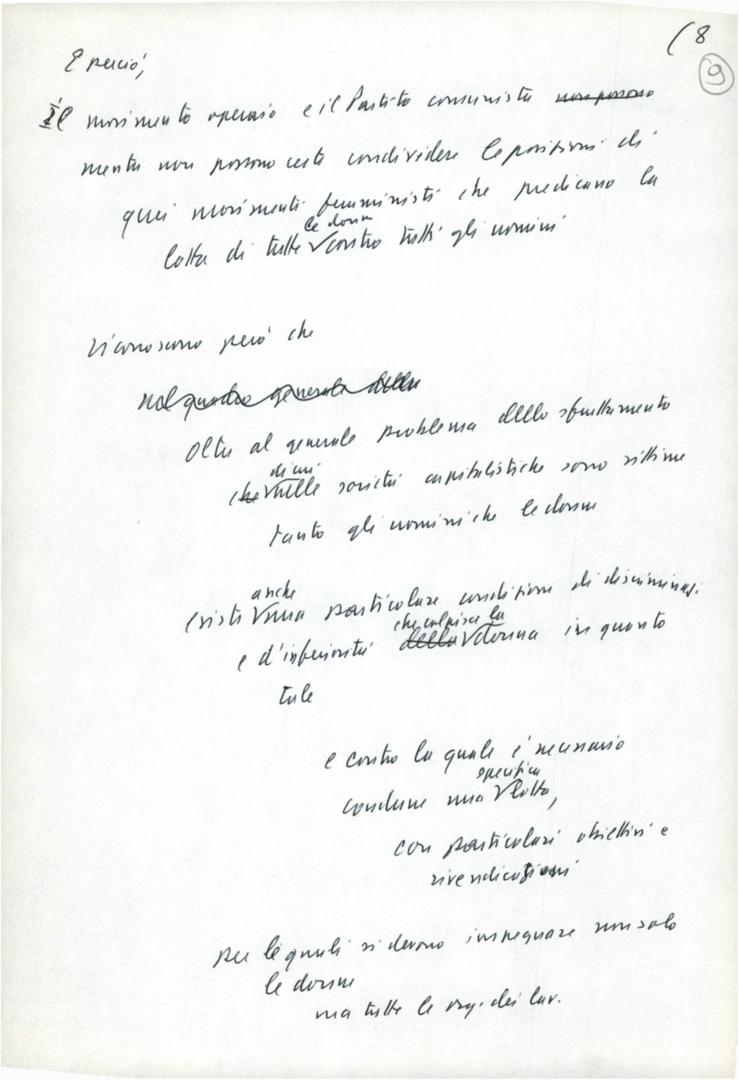 (8
9
E perciò,
Il movimento operaio e il Partito comunista non possono
mentre non possono certo condividere le posizioni di
quei movimenti femministi che predicano la
le donne
lotta di tutte contro tutti gli uomini
riconoscono però che
nel quadro generale della
Oltre al generale problema dello sfruttamento
di cui
che nelle società capitalistiche sono vittime
tanto gli uomini che le donne
anche
esiste una particolare condizione di discriminaz.
che colpisce la
e d'inferiorità della donna in quanto
tale
e contro la quale è necessario
specifica
condurre una lotta,
con particolari obiettivi e
rivendicazioni
per le quali si devono impegnare non solo
le donne
ma tutte le org. dei lav.